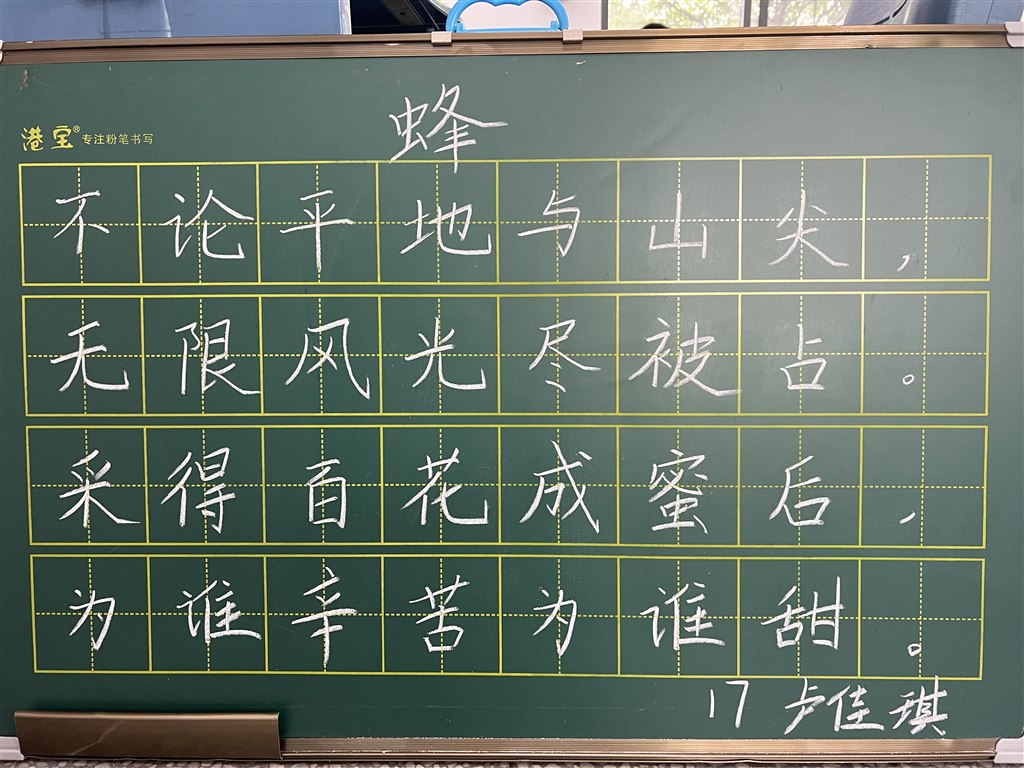 蜂
港宝® 专注粉笔书写
不论平地与山尖，
无限风光尽被占。
采得百花成蜜后，
为谁辛苦为谁甜。
17 卢佳琪